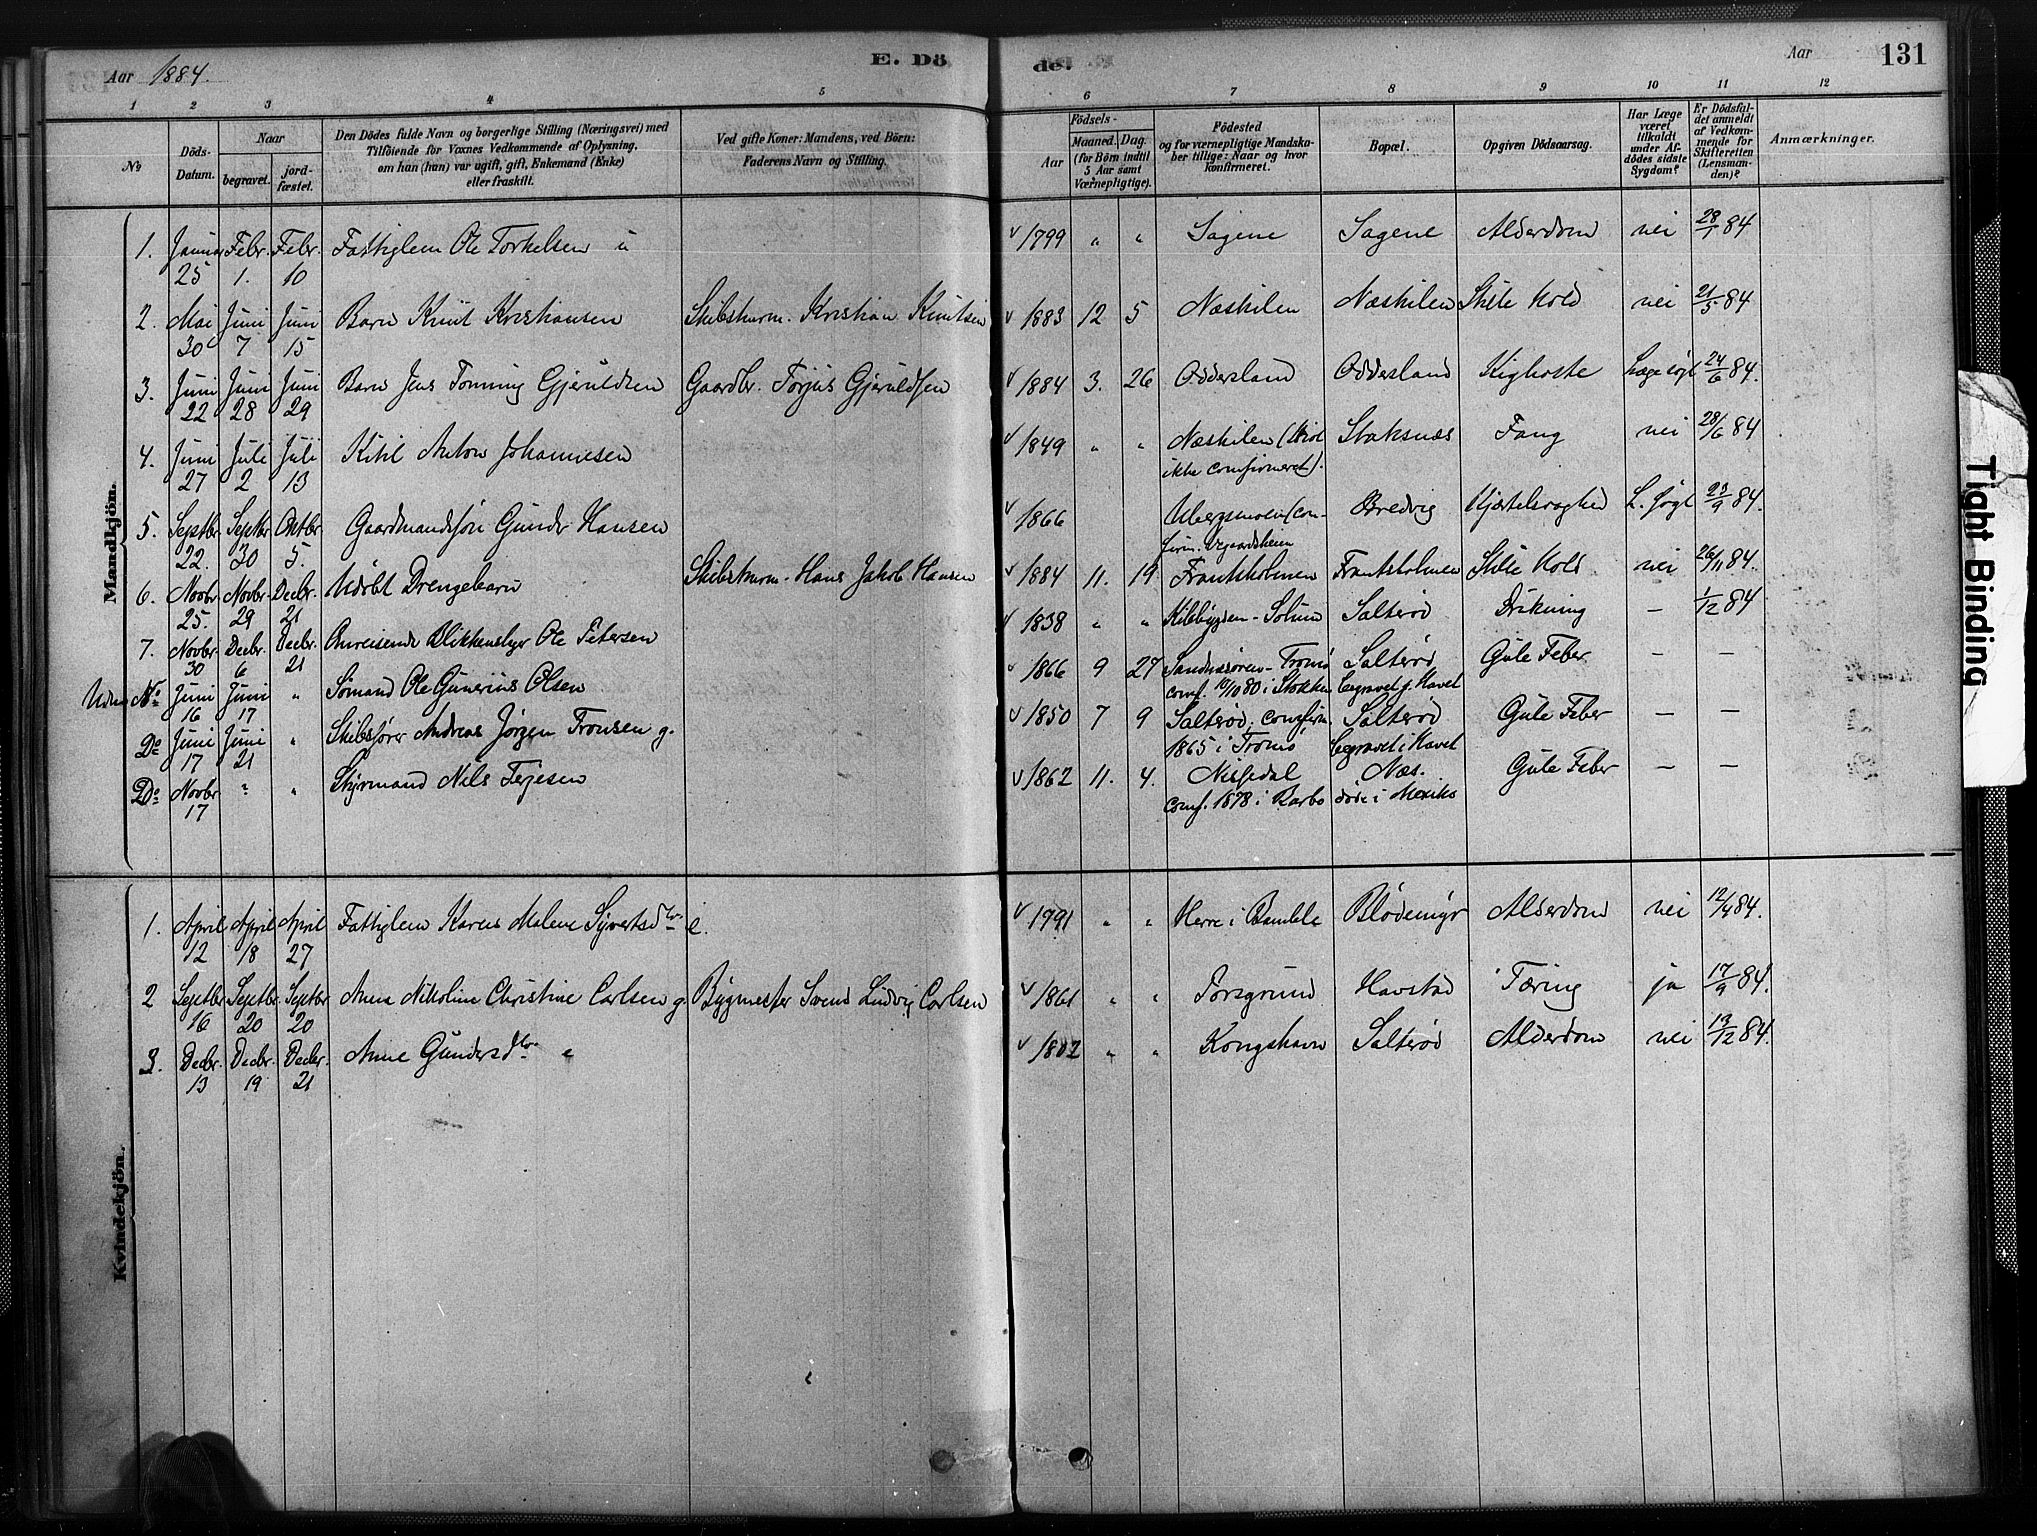 Aar 1884. E. Dö de. Aar 131
1 2 3 4 5 6 7 8 9 10 11 12
No Döds-Datum. Naar begravet. jordfæstet. Den Dödes fulde Navn og borgerlige Stilling (Næringsvei) med Tilföiende for Voxnes Vedkommende af Oplysning, om han (hun) var ugift, gift, Enkemand (Enke) eller fraskilt. Ved gifte Koner: Mandens, ved Börn: Faderens Navn og Stilling. Födsels- Aar Maaned. Dag. (for Börn indtil 5 Aar samt Værnepligtige). Födested og for værnepligtige Mandskaber tillige: Naar og hvor konfirmeret. Bopæl. Opgiven Dödsaarsag. Har Læge været tilkaldt under Afdödes sidste Sygdom? Er Dödsfaldet anmeldt af Vedkommende for Skifteretten (Lensmanden)? Anmærkninger.
Mandkjön.
1. Januar 25 Febr. 1. Febr. 10 Fattiglem Ole Torkelsen u v 1799 " " Sagene Sagene Alderdom nei 28/1 84
2. Mai 30 Juni 7 Juni 15 Barn Knut Kristiansen Skibsturm. Kristian Knutsen v 1883 12 5 Næskilen Næskilen Stikhold nei 21/5 84
3. Juni 22 Juni 28 Juni 29 Barn Jens Tonning Gjeruldsen Gaardbr. Torjus Gjeruldsen v 1884 3. 26 Oddersland Oddersland Kighoste Læge søgt 24/6 84.
4. Juni 27 Juli 2 Juli 13 Kitil Anton Johannesen v 1849 " " Næskilen ikke confirmeret). Staksnæs Fang nei 28/6 84
5. Septbr. 22. Septbr 30 Oktbr 5. Gaardmandssön Gunder Hansen v 1866 Ubergsmoen (confirm. Vegaardsheien Bredvig Kjertelsvaghed L. søgt 23/9 84.
6. Novbr 25. Novbr. 29 Decbr. 21 Udøbt Drengebarn Skibsturm. Hans Jakob Hansen v 1884 11. 19 Frantsholmen Frantsholmen Stikhold nei 26/11 84.
7. Novbr. 30 Decbr. 6 Decbr. 21 Omreisende Blikkenslager Ole Petersen v 1838 " " Kilebygden - Solum Salterød Drukning — 1/12 84
Uden No Juni 16 Juni 17 " Sømand Ole Gunerius Olsen v 1866 9 27 Sandnæsøren - Tromø conf. 10/10 80 i Stokken Salterød begravet i Havet Gule Feber — —
Do Juni 17 Juni 21 " Skibsfører Andreas Jörgen Tronsen g. v 1850 7 9 Salterød, confirm. 1865 i Tromø Salterød begravet i Havet Gule Feber — —
Do Novbr 17 " " Styrmand Nils Terjesen v 1862 11. 4. Nissedal conf. 1878 i Barbo Næs. døde i Mexiko Gule Feber — —
Kvindekjön.
1. April 12 April 18 April 27 Fattiglem Karen Malene Syvertsdtr. e. v 1791 " " Herre i Bamble Blødemyr Alderdom nei 12/4 84.
2 Septbr 16 Septbr. 20 Septbr 20 Anne Nikoline Christine Carlsen g. Bygmester Svend Ludvig Carlsen v 1861 " " Porsgrund Havstad Tæring ja 17/9 84.
3. Decbr. 13 Decbr. 19 Decbr. 21 Anne Gundersdtr. " v 1802 " " Kongshavn Salterød Alderdom nei 13/12 84.
Tight Binding